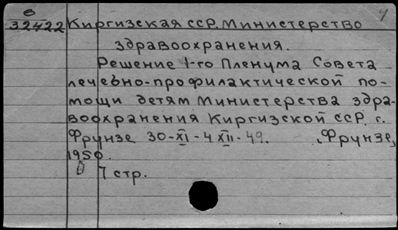 в 4
32422 Киргизская ССР. Министерство
здравоохранения.
Решение 1-го Пленума Совета
лечебно-профилактической по-
мощи детям Министерства здра-
воохранения Киргизской ССР. г.
Фрунзе 30-XI-4 XII-49. Фрунзе,
1950.
7 стр.